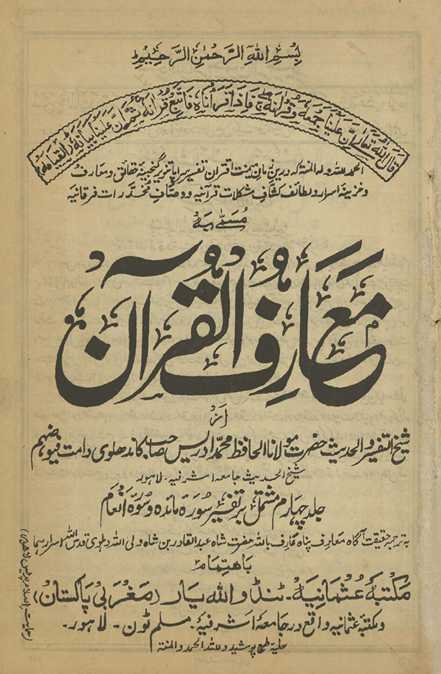 بِسْمِ اللّٰهِ الرَّحْمٰنِ الرَّحِيْمِ
قال اللہ تعالیٰ اِنَّ عَلَيْنَا جَمْعَهٗ وَقُرْاٰنَهٗ فَاِذَا قَرَاْنَاهُ فَاتَّبِعْ قُرْاٰنَهٗ ثُمَّ اِنَّ عَلَيْنَا بَيَانَهٗ
الحمد للہ والمنۃ کہ دریں زمان تفسیر سراپا تنویر گنجینۂ حقائق و معارف
و خزینۂ اسرار و لطائف کشاف مشکلات قرآنیہ و وصاف مخدرات فرقانیہ
مسمّٰے بہ
معارف القرآن
از
شیخ التفسیر والحدیث حضرت مولانا الحافظ محمد ادریس صاحب کاندھلوی دامت فیوضہم
شیخ الحدیث جامعہ اشرفیہ۔ لاہور
جلد چہارم مشتمل بر تفسیر سورہ مائدہ و سورۂ انعام
بہ ترجمہ حقیقت آگاہ معارف پناہ عارف باللہ حضرت شاہ عبدالقادر بن شاہ ولی اللہ دہلوی قدس اللہ اسرارہما
باہتمام
مکتبہ عثمانیہ۔ ٹنڈو اللہ یار (مغربی پاکستان)
و مکتبہ عثمانیہ واقع در جامعہ اشرفیہ مسلم ٹون۔ لاہور۔
حلیۂ طبع پوشید و للہ الحمد والمنۃ